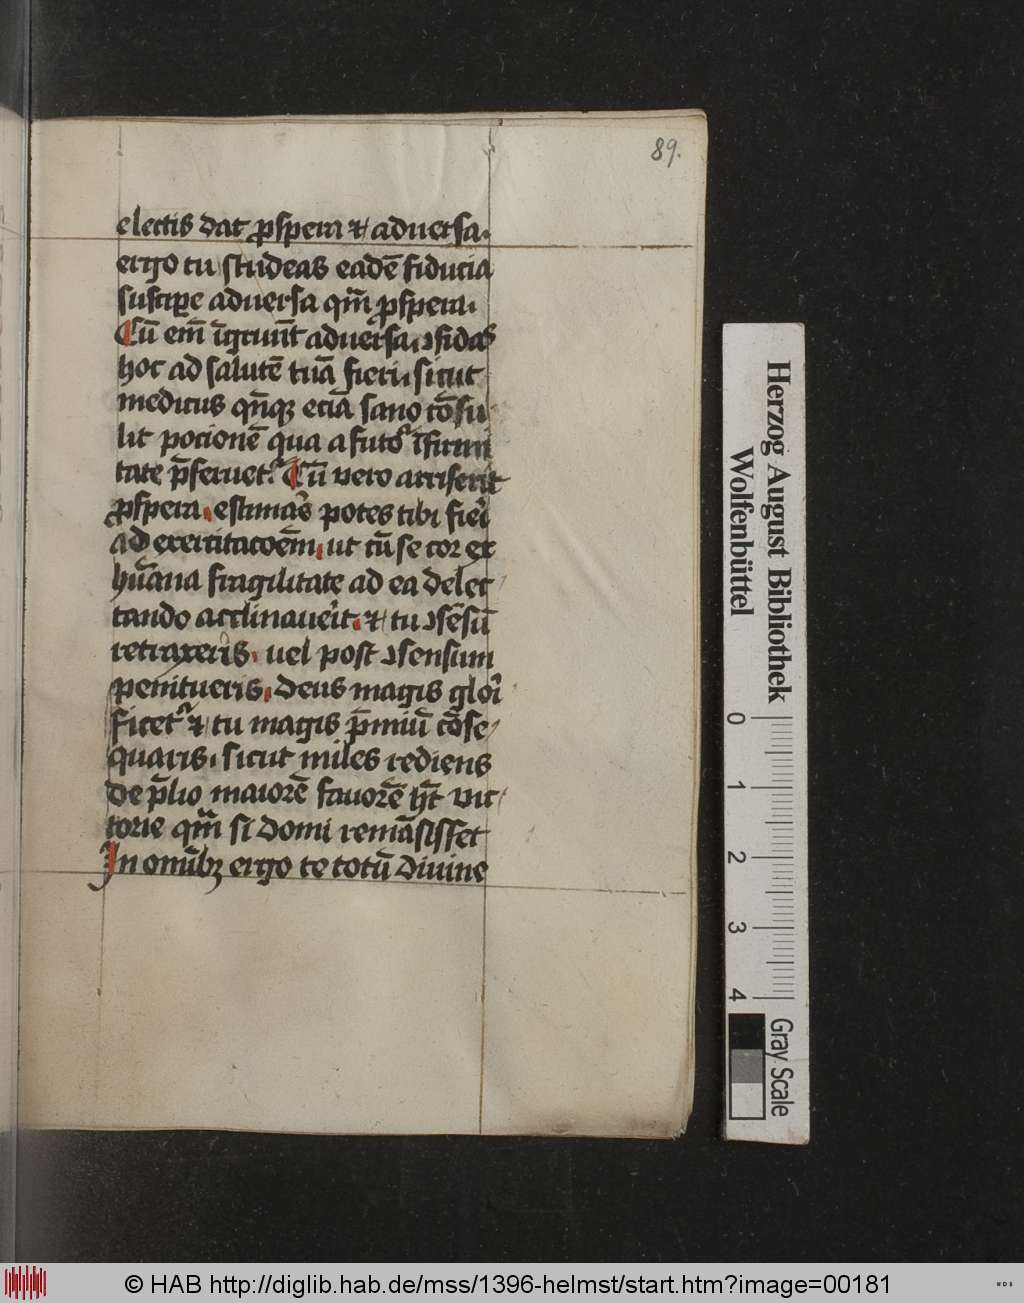 89.
electis dat ꝓspera ⁊ aduersa.
ergo tu studeas eadē fiducia
suscipe aduersa qm̄ ꝓspera.
Cū em̄ īgruūt aduersa ꝯfidas
hoc ad salutē tuā fieri, sicut
medicus qn̄qꝫ eciā sano cōsu
lit pocionē qua a futᵒ īfirmi
tate p̄seruetᷣ. Cū vero arriserit
ꝓspera, estimaᷣs potes tibi fieri
ad exercitacōem̄, ut cū se cor ex
hūana fragilitate ad ea delec
tando acclinauerit, ⁊ tu ꝯsēsū
retraxeris, uel post ꝯsensum
penitueris, deus magis glori
ficetᷣ ⁊ tu magis p̄miū cōse
quaris, sicut miles rediens
de p̄lio maiorē fauorē hꝫt vic
torie qm̄ si domi remāsisset
In omībꝫ ergo te totū diuine
Herzog August Bibliothek
Wolfenbüttel
0 1 2 3 4
Gray Scale
© HAB http://diglib.hab.de/mss/1396-helmst/start.htm?image=00181